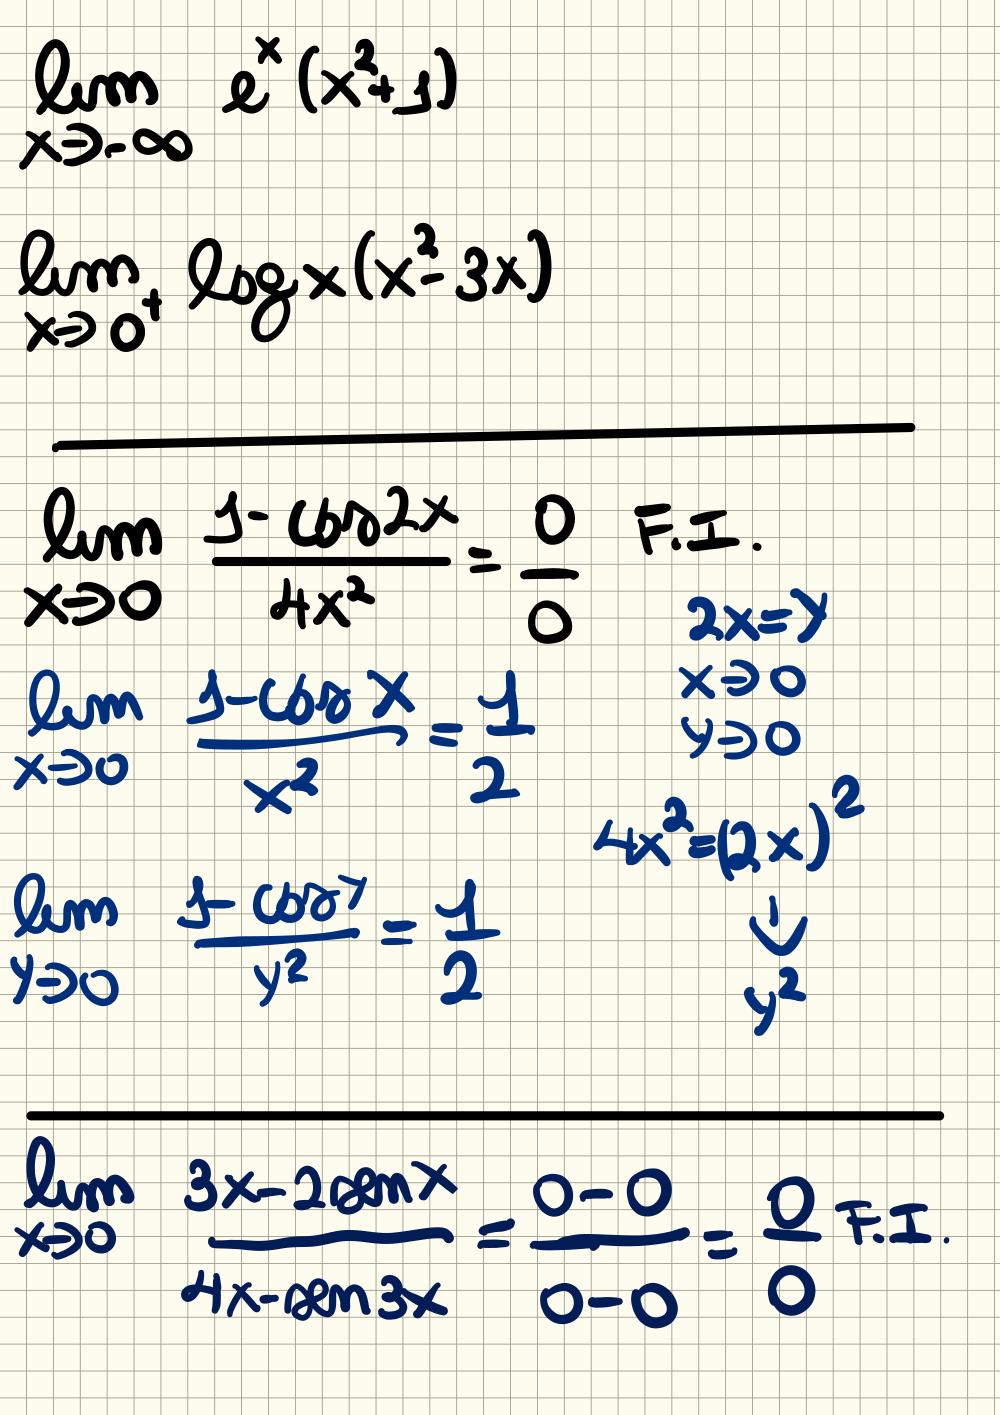 lim eˣ (x²+1)
x→-∞
lim log x (x²-3x)
x→0⁺
lim (1-cos2x)/(4x²) = 0/0 F.I.
x→0
2x=y
x→0
y→0
lim (1-cos x)/(x²) = 1/2
x→0
4x²=(2x)²
↓
y²
lim (1-cos y)/(y²) = 1/2
y→0
lim (3x-2sen x)/(4x-sen 3x) = (0-0)/(0-0) = 0/0 F.I.
x→0